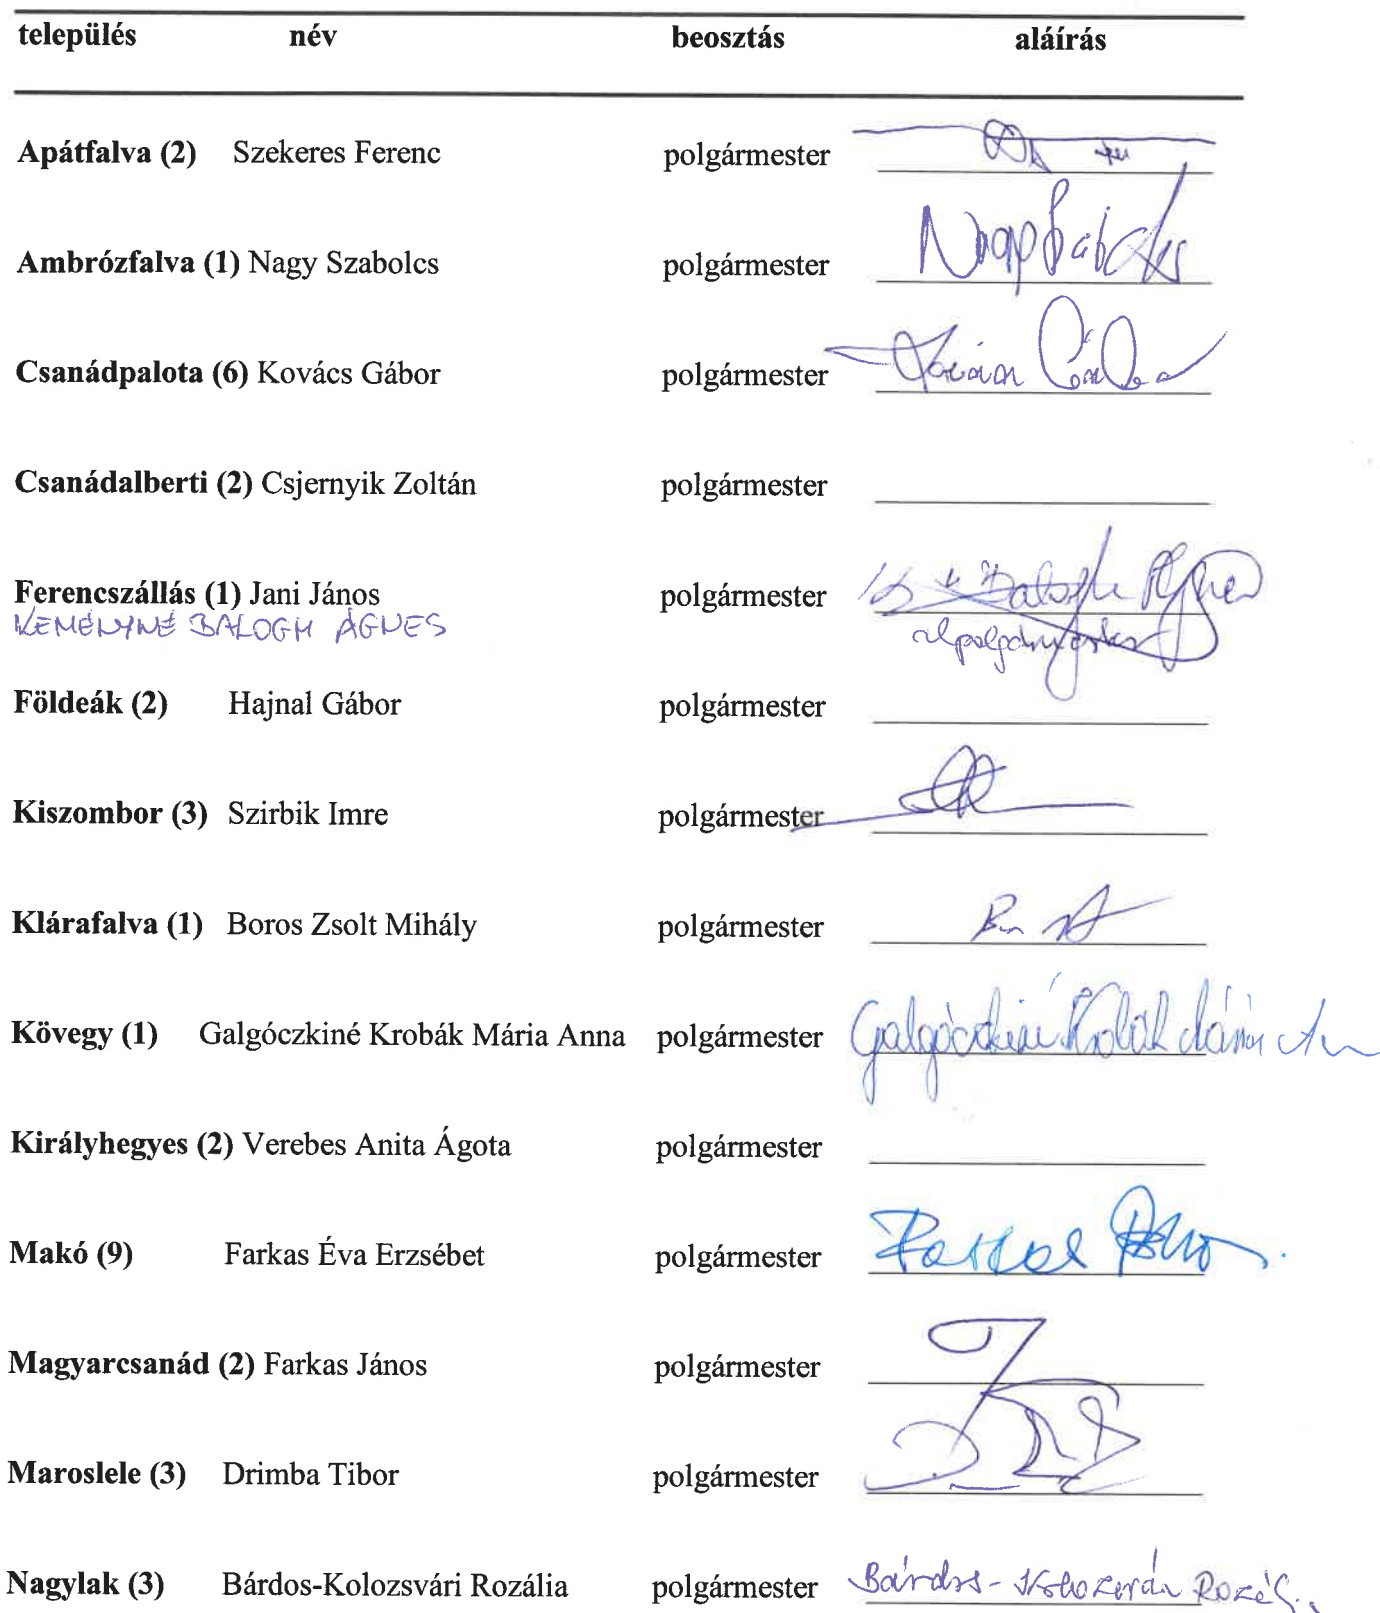 település név beosztás aláírás
Apátfalva (2) Szekeres Ferenc polgármester
Ambrózfalva (1) Nagy Szabolcs polgármester Nagy Szabolcs
Csanádpalota (6) Kovács Gábor polgármester
Csanádalberti (2) Csjernyik Zoltán polgármester
Ferencszállás (1) Jani János polgármester Balogh Ágnes
KEMÉNYNÉ BALOGH ÁGNES alpolgármester
Földeák (2) Hajnal Gábor polgármester
Kiszombor (3) Szirbik Imre polgármester
Klárafalva (1) Boros Zsolt Mihály polgármester
Kövegy (1) Galgóczkiné Krobák Mária Anna polgármester Galgóczkiné Krobák Mária
Királyhegyes (2) Verebes Anita Ágota polgármester
Makó (9) Farkas Éva Erzsébet polgármester Farkas
Magyarcsanád (2) Farkas János polgármester
Maroslele (3) Drimba Tibor polgármester
Nagylak (3) Bárdos-Kolozsvári Rozália polgármester Bárdos-Kolozsvári Rozália